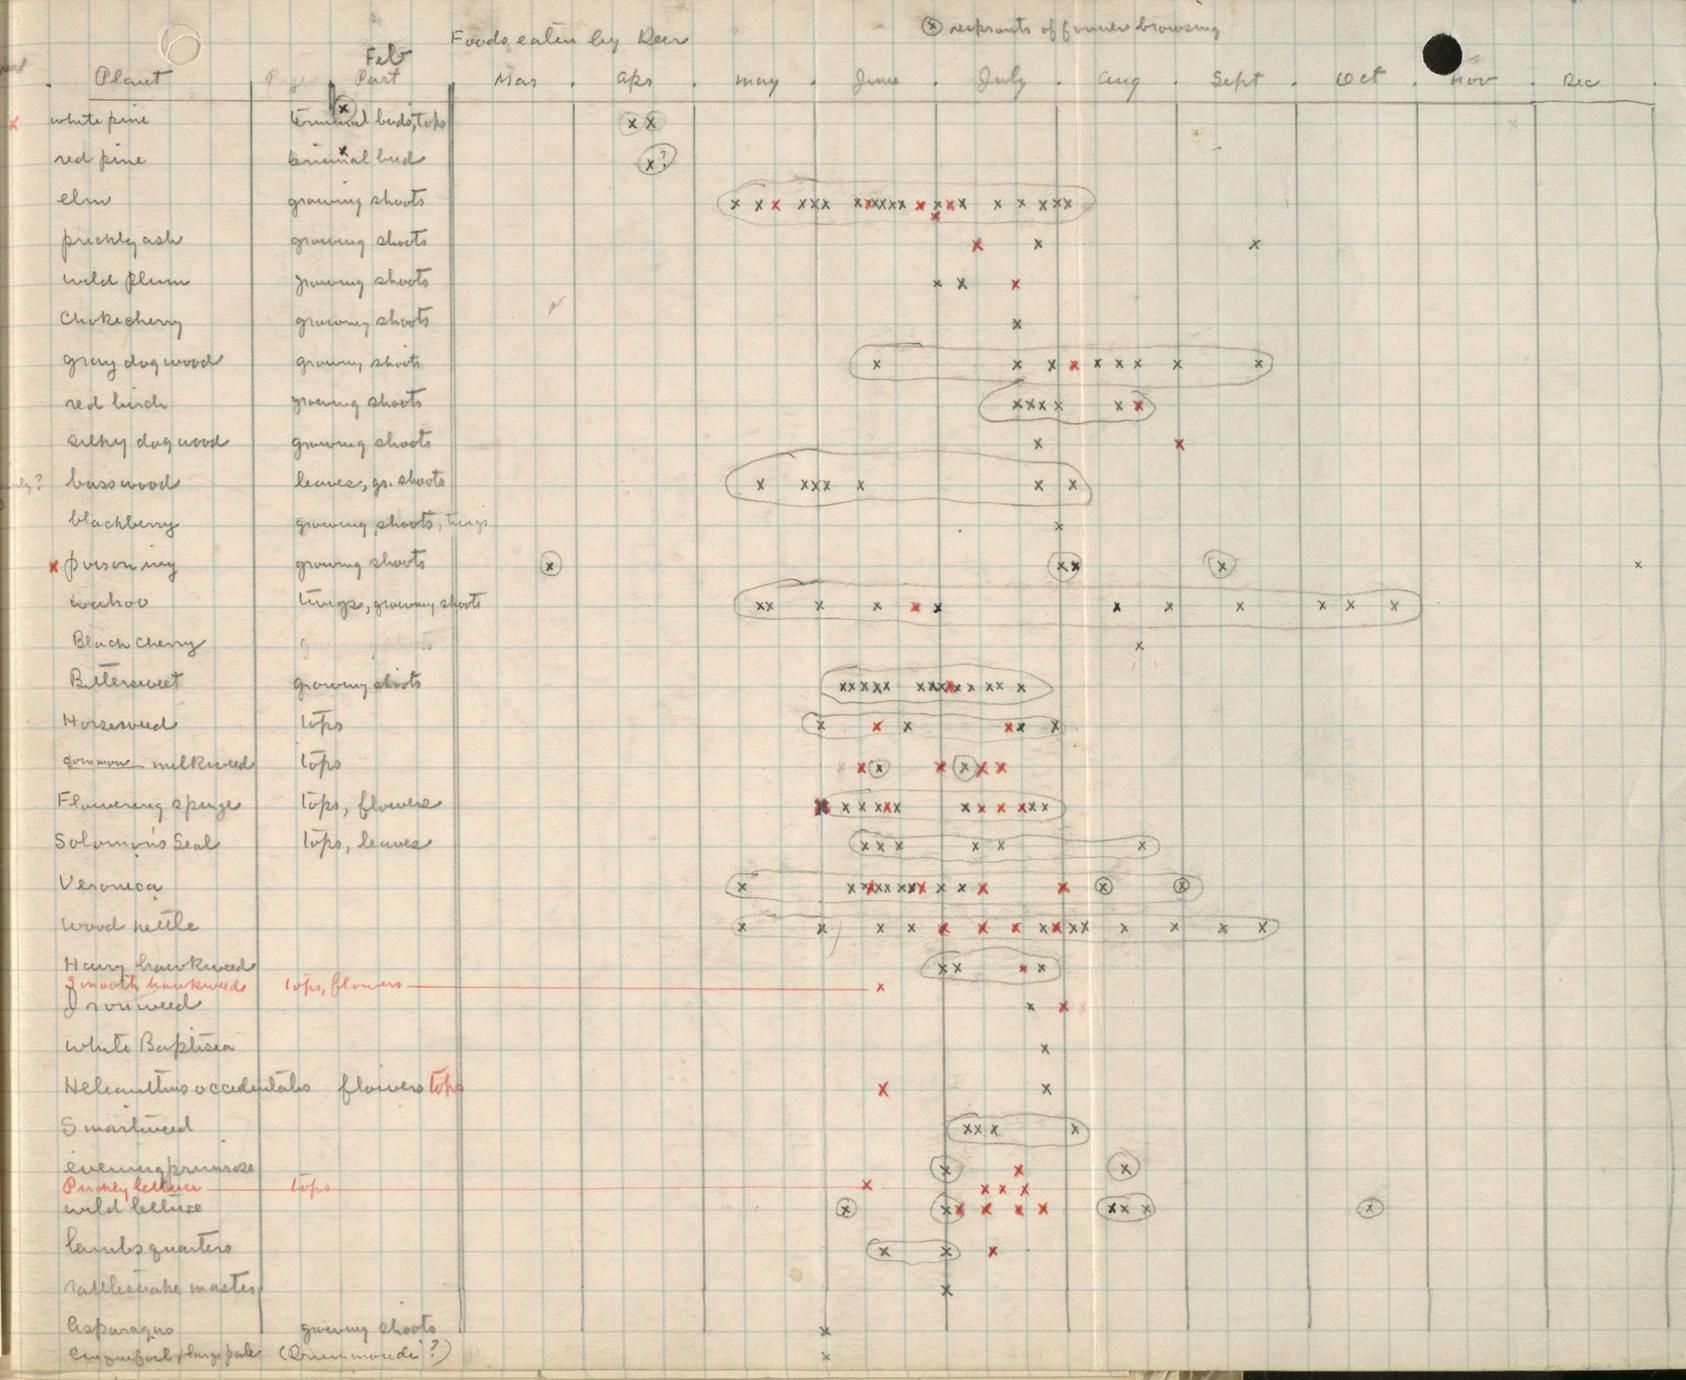 Foods eaten by Deer
ⓧ resprouts of former browsing
Plant Part Feb Mar Apr May June July Aug Sept Oct Nov Dec
white pine terminal buds, tops x x x
red pine terminal bud x x?
elm growing shoots
prickly ash growing shoots x x x
wild plum growing shoots x x x
Chokecherry growing shoots x
gray dogwood growing shoots x x x x x x x x x
red birch growing shoots x x x x x x
silky dogwood growing shoots x x
basswood leaves, gr. shoots x x x x x x x
blackberry growing shoots, twigs x
x poison ivy growing shoots x x x x x
wahoo twigs, growing shoots x x x x x x x x x x x x
Black Cherry x
Bittersweet growing shoots
Horseweed tops x x x x x x
common milkweed tops
Flowering spurge tops, flowers
Solomon's Seal tops, leaves x x x x x x
Veronica
Wood nettle
Hairy hawkweed x x x x
Smooth hawkweed tops, flowers x
Ironweed x x x
White Baptisia x
Helianthus occidentalis flowers tops x x
Smartweed x x x x
evening primrose x x x
Prickly lettuce tops x x x x
wild lettuce x x x x x x x x x x
lambs quarters x x x
rattlesnake master x
Asparagus growing shoots x
Cinquefoil, large pale (Drummondi?) x